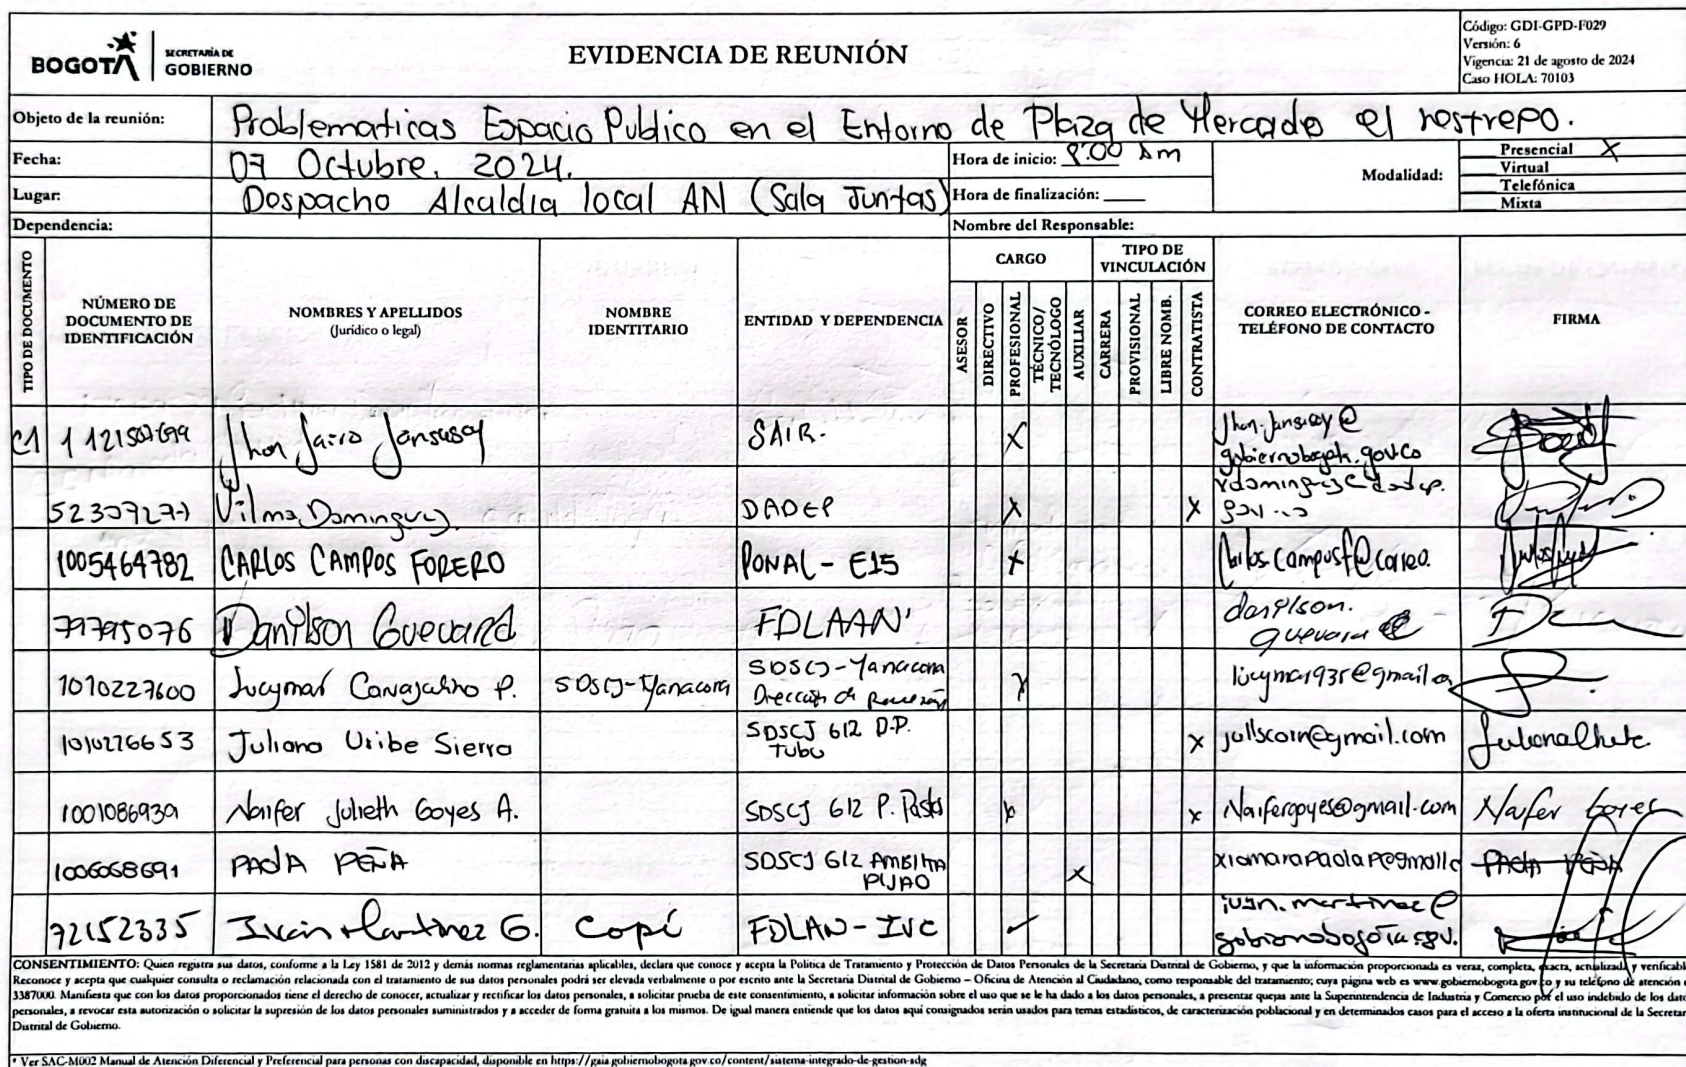 BOGOTÁ
SECRETARÍA DE
GOBIERNO
EVIDENCIA DE REUNIÓN
Código: GDI-GPD-F029
Versión: 6
Vigencia: 21 de agosto de 2024
Caso HOLA: 70103
Objeto de la reunión: Problematicas Espacio Publico en el Entorno de Plaza de Mercado el restrepo.
Fecha: 07 Octubre. 2024.
Hora de inicio: 8:00 Am
Modalidad:
Presencial X
Virtual
Telefónica
Mixta
Lugar: Despacho Alcaldia local AN (Sala Juntas)
Hora de finalización:
Dependencia:
Nombre del Responsable:
TIPO DE DOCUMENTO
NÚMERO DE
DOCUMENTO DE
IDENTIFICACIÓN
NOMBRES Y APELLIDOS
(Jurídico o legal)
NOMBRE
IDENTITARIO
ENTIDAD Y DEPENDENCIA
CARGO
ASESOR
DIRECTIVO
PROFESIONAL
TÉCNICO/
TECNÓLOGO
AUXILIAR
TIPO DE
VINCULACIÓN
CARRERA
PROVISIONAL
LIBRE NOMB.
CONTRATISTA
CORREO ELECTRÓNICO -
TELÉFONO DE CONTACTO
FIRMA
Jhon Jairo Jansasoy SAIR. X
gobiernobogota.gov.co
Vilma Dominguez. DADEP X X
1005464782 CARLOS CAMPOS FORERO PONAL - E15 X carlos.campusf@correo.
79795076 Danilson Guevara FDLAAN danilson.
guevara @
1010227600 Lucymar Carvajalino P. SDSCJ-Yanacona SDSCJ-Yanacona X lucymar935@gmail.co
Dirección de
1010276653 Juliana Uribe Sierra SDSCJ 612 D.P. X jullscoin@gmail.com
Tubu
1001086939 Naifer Julieth Goyes A. SDSCJ 612 P. Pastos X X Naifergoyes@gmail.com Naifer Goyes
1006068691 PAOLA PEÑA SDSCJ 612 AMBIKA X xiomarapaolap@gmailc PAOLA PEÑA
PIJAO
72152335 Iván Martinez G. Copi FDLAN-IVC ✓ ivan.martinez@
gobiernobogota.gov.
CONSENTIMIENTO: Quien registra sus datos, conforme a la Ley 1581 de 2012 y demás normas reglamentarias aplicables, declara que conoce y acepta la Política de Tratamiento y Protección de Datos Personales de la Secretaría Distrital de Gobierno, y que la información proporcionada es veraz, completa, exacta, actualizada y verificable
Reconoce y acepta que cualquier consulta o reclamación relacionada con el tratamiento de sus datos personales podrá ser elevada verbalmente o por escrito ante la Secretaría Distrital de Gobierno – Oficina de Atención al Ciudadano, como responsable del tratamiento; cuya página web es www.gobiernobogota.gov.co y su teléfono de atención
3387000. Manifiesta que con los datos proporcionados tiene el derecho de conocer, actualizar y rectificar los datos personales, a solicitar prueba de este consentimiento, a solicitar información sobre el uso que se le ha dado a los datos personales, a presentar quejas ante la Superintendencia de Industria y Comercio por el uso indebido de los dato
personales, a revocar esta autorización o solicitar la supresión de los datos personales suministrados y a acceder de forma gratuita a los mismos. De igual manera entiende que los datos aquí consignados serán usados para temas estadísticos, de caracterización poblacional y en determinados casos para el acceso a la oferta institucional de la Secretar
Distrital de Gobierno.
* Ver SAC-M002 Manual de Atención Diferencial y Preferencial para personas con discapacidad, disponible en https://gaia.gobiernobogota.gov.co/content/sistema-integrado-de-gestion-sdg